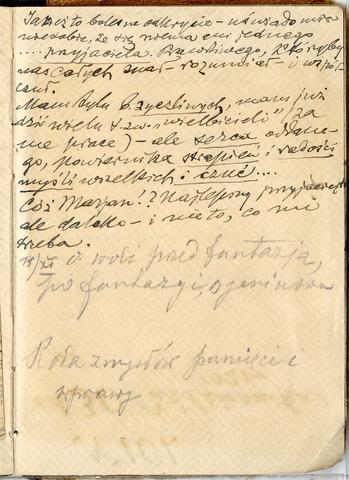 Jakież to bolesne odkrycie – uświadomienie
sobie, że się niema ani jednego
.... przyjaciela. Prawdziwego, któryby
nas całych znał – rozumiał i współ-
czuł.
Mam tylu życzliwych, mam już
dziś wielu t.zw. „wielbicieli” (za
me prace) – ale serca oddane-
go, powiernika cierpień i radości
myśli wszelkich i czuć....
Cóż Marjan!? Najlepszy przyjaciel
ale daleko – i nie to, co mi
trzeba.
13/XI O woli przed fantazją,
po fantazyi, o geniuszu
Rola zmysłów pamięci i
wprawy